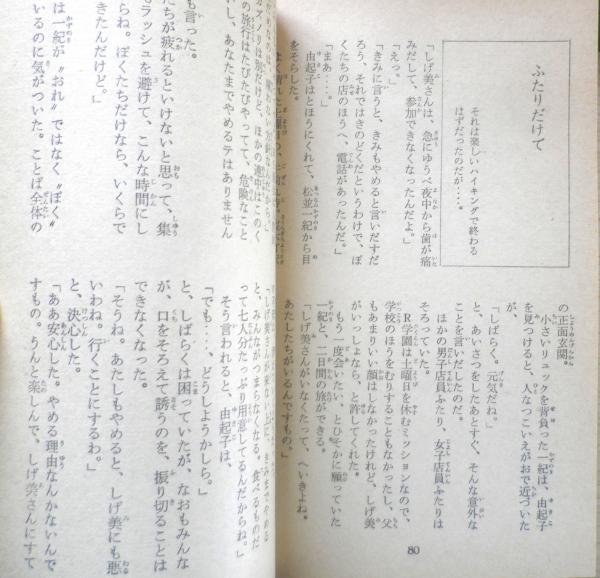 ふたりだけで
それは楽しいハイキングで終わる
はずだったのだが・・・。
「しげ美さんは、急にゆうべ夜中から歯が痛
みだして、参加できなくなったんだよ。」
「えっ。」
「きみに言うと、きみもやめると言いだすだ
ろう。それではきのどくだというわけで、ぼ
くたちの店のほうへ、電話があったんだ。」
「まあ・・・。」
由起子はとほうにくれて、松並一紀から目
をそらした。
の正面玄関。
小さいリュックを背負った一紀は、由起子
を見つけると、人なつこいえがおで近づいた
が、
「しばらく、元気だね。」
と、あいさつをしたあとすぐ、そんな意外な
ことを言いだしたのだ。
ほかの男子店員ふたり、女子店員ふたりは
そろっていた。
R学園は土曜日を休むミッションなので、
学校のほうをむりすることもなかったし、父
もあまりいい顔はしなかったけれど、しげ美
がいっしょなら、と許してくれた。
もう一度会いたい、とひそかに願っていた
一紀と、二日間の旅ができる。
「しげ美さんがいなくたって、へいきよね。
あたしたちがいるんですもの。」
80
カズノリは別だけど、ほかの連中はこのく
の旅行はたびたびやってて、危険なこと
いし、あなたまでやめるテはありません
も言った。
たちが疲れるといけないと思って、集
もラッシュを避けて、こんな時間にし
らね。ぼくたちだけなら、いくらで
きたんだけど。」
は一紀が〝おれ〟ではなく〝ぼく〟
いるのに気がついた。ことば全体の
と、みんながつまらなくなる。食べるものだ
って七人分たっぷり用意してるんだからね。」
そう言われると、由起子は、
「でも・・・、どうしようかしら。」
と、しばらくは困っていたが、なおもみんな
が、口をそろえて誘うのを、振り切ることは
できなくなった。
「そうね。あたしもやめると、しげ美にも悪
いわね。行くことにするわ。」
と、決心した。
「ああ安心した。やめる理由なんかないんで
すもの。うんと楽しんで、しげ美さんにすて